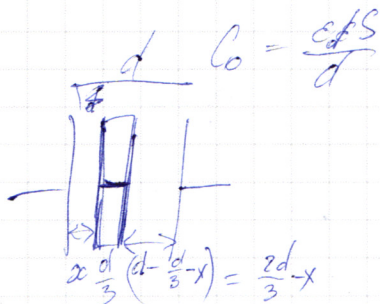 d C₀ = εS/d
x d/3 (d - d/3 - x) = 2d/3 - x